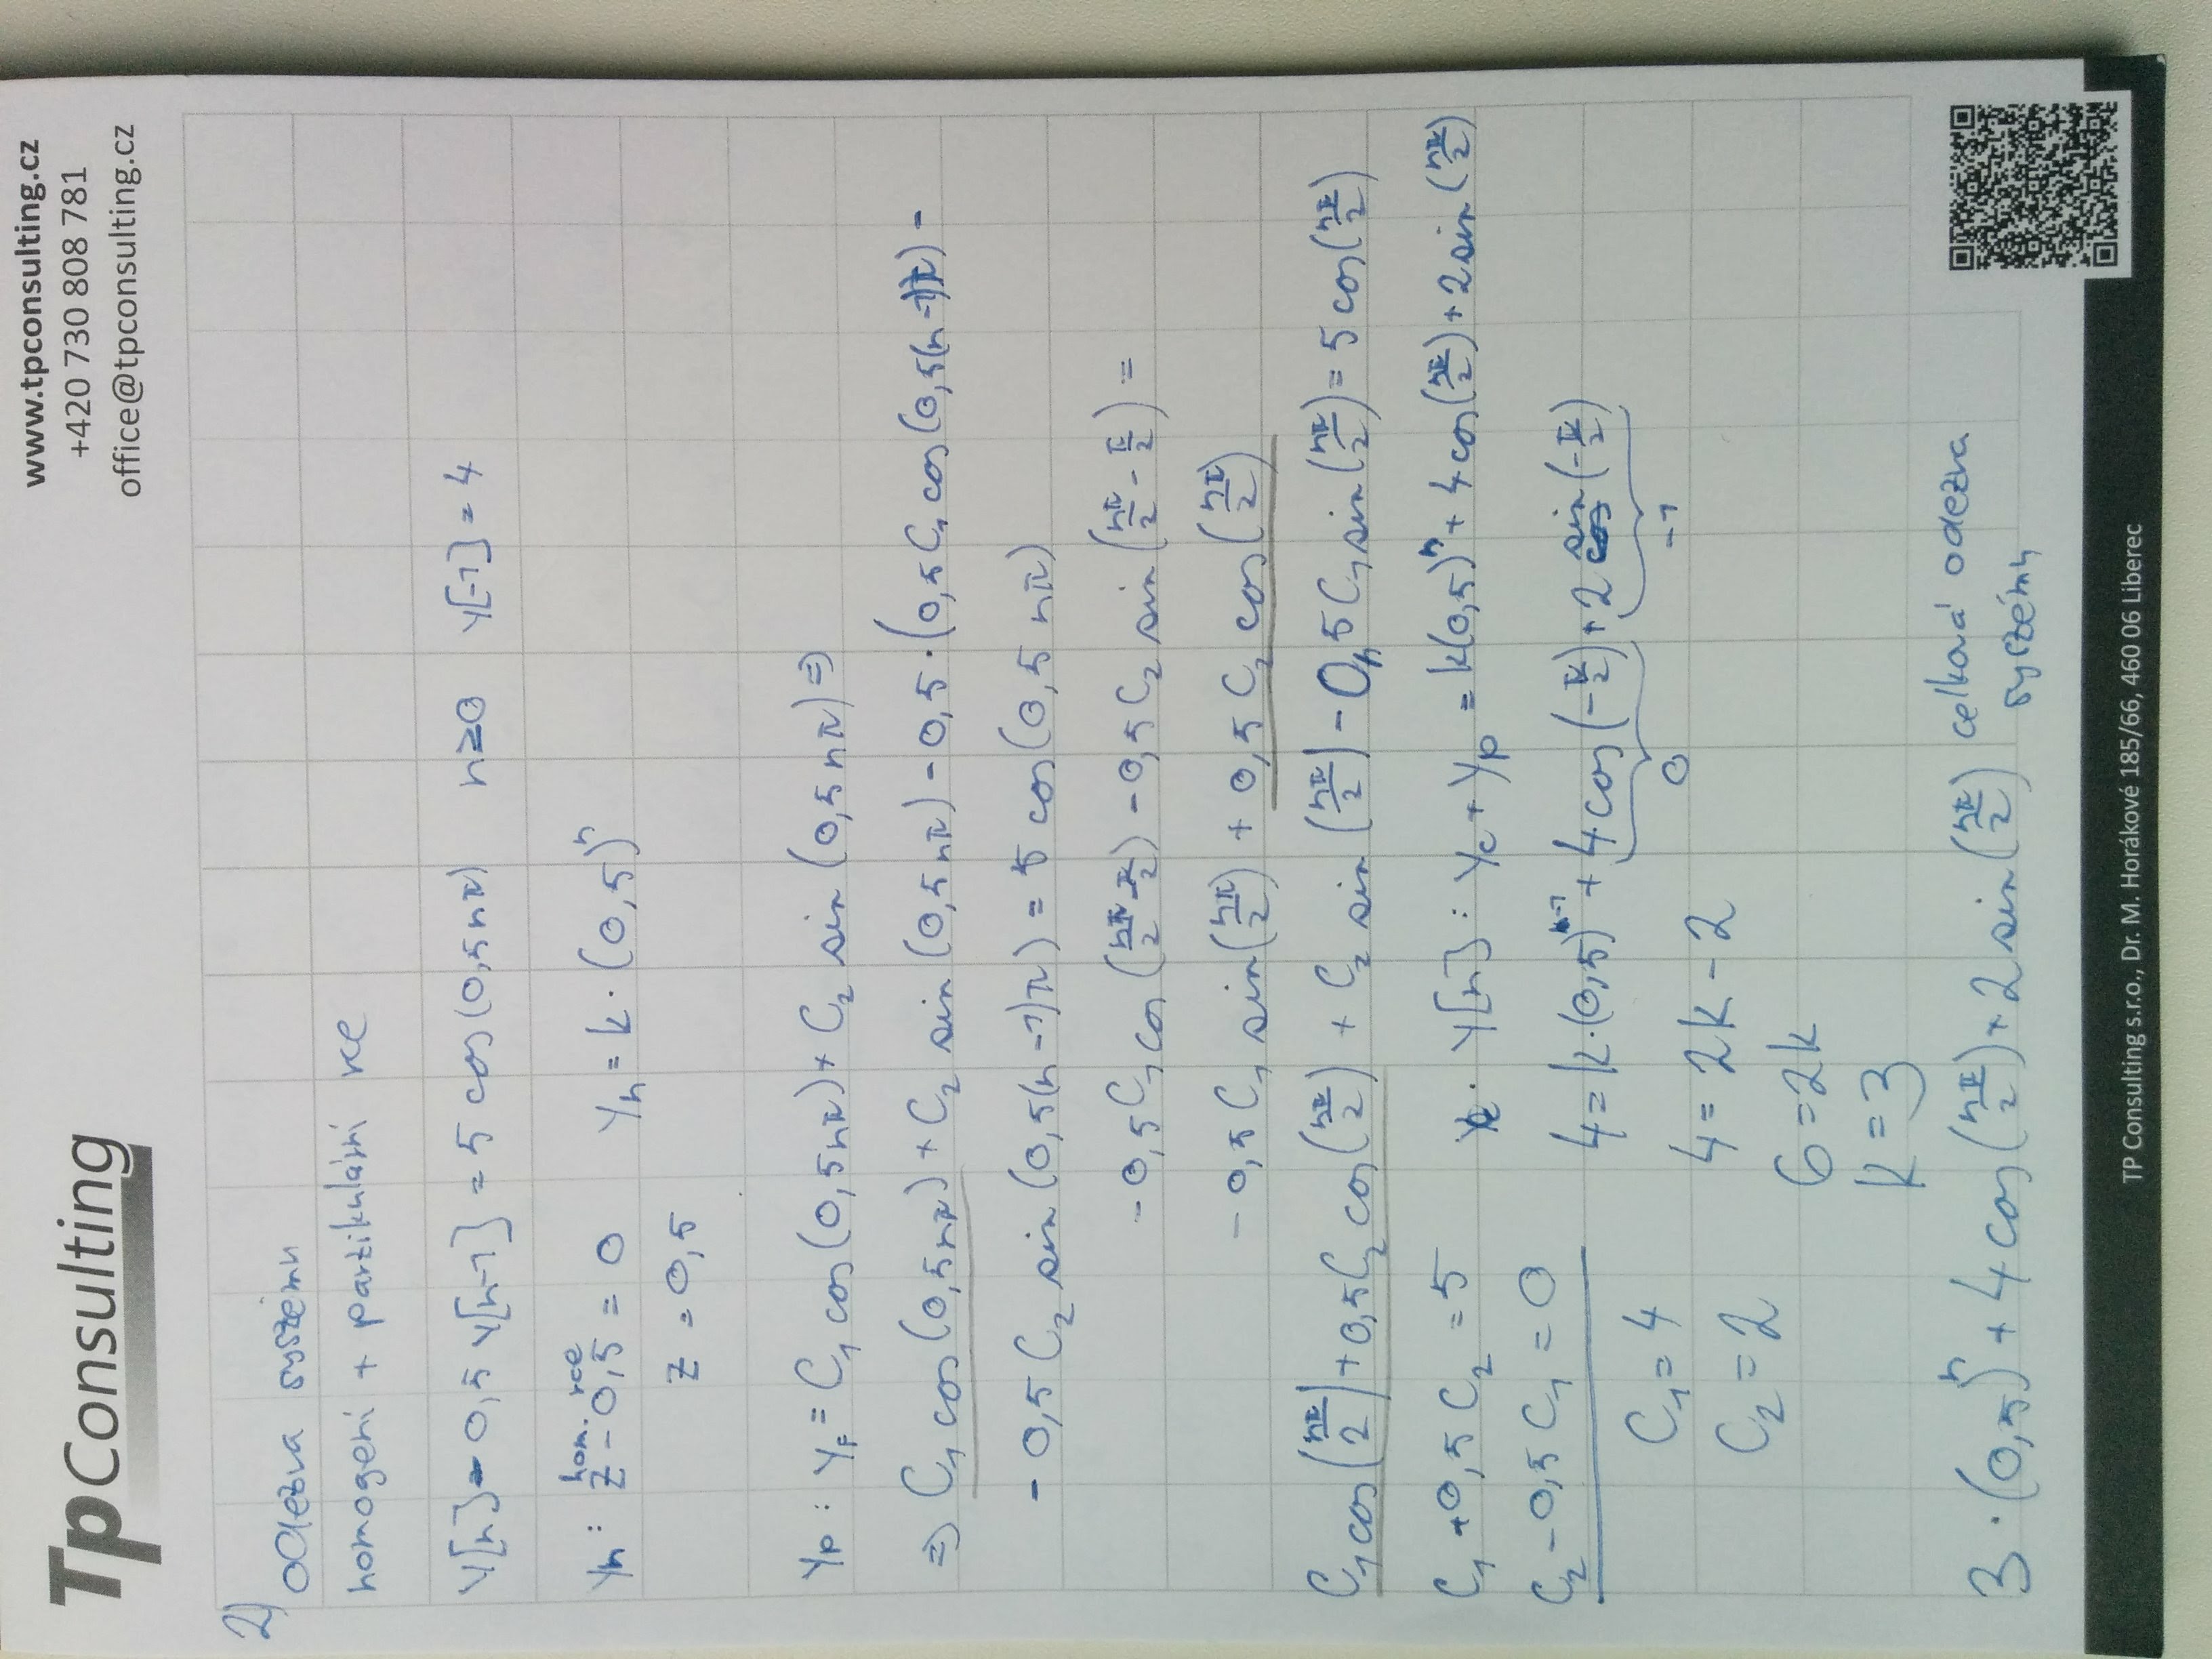 TpConsulting
www.tpconsulting.cz
+420 730 808 781
office@tpconsulting.cz
2) odezva systému
homogení + partikulární rce
y[n] - 0,5 y[n-1] = 5 cos(0,5nπ) n≥0 y[-1] = 4
hom. rce
yh: z - 0,5 = 0 yh = k · (0,5)^n
z = 0,5
yp: yF = C1 cos(0,5nπ) + C2 sin(0,5nπ) =>
=> C1 cos(0,5nπ) + C2 sin(0,5nπ) - 0,5 · (0,5 C1 cos(0,5(n-1)π) -
- 0,5 C2 sin(0,5(n-1)π) = 5 cos(0,5nπ)
- 0,5 C1 cos(nπ/2 - π/2) - 0,5 C2 sin(nπ/2 - π/2) =
- 0,5 C1 sin(nπ/2) + 0,5 C2 cos(nπ/2)
C1 cos(nπ/2) + 0,5 C2 cos(nπ/2) + C2 sin(nπ/2) - 0,5 C1 sin(nπ/2) = 5 cos(nπ/2)
C1 + 0,5 C2 = 5 y[n]: yc + yp = k(0,5)^n + 4 cos(nπ/2) + 2 sin(nπ/2)
C2 - 0,5 C1 = 0 4 = k·(0,5)^-1 + 4 cos(-π/2) + 2 sin(-π/2)
0 -1
C1 = 4 4 = 2k - 2
C2 = 2 6 = 2k
k = 3
3 · (0,5)^n + 4 cos(nπ/2) + 2 sin(nπ/2) celková odezva
systému
TP Consulting s.r.o., Dr. M. Horákové 185/66, 460 06 Liberec